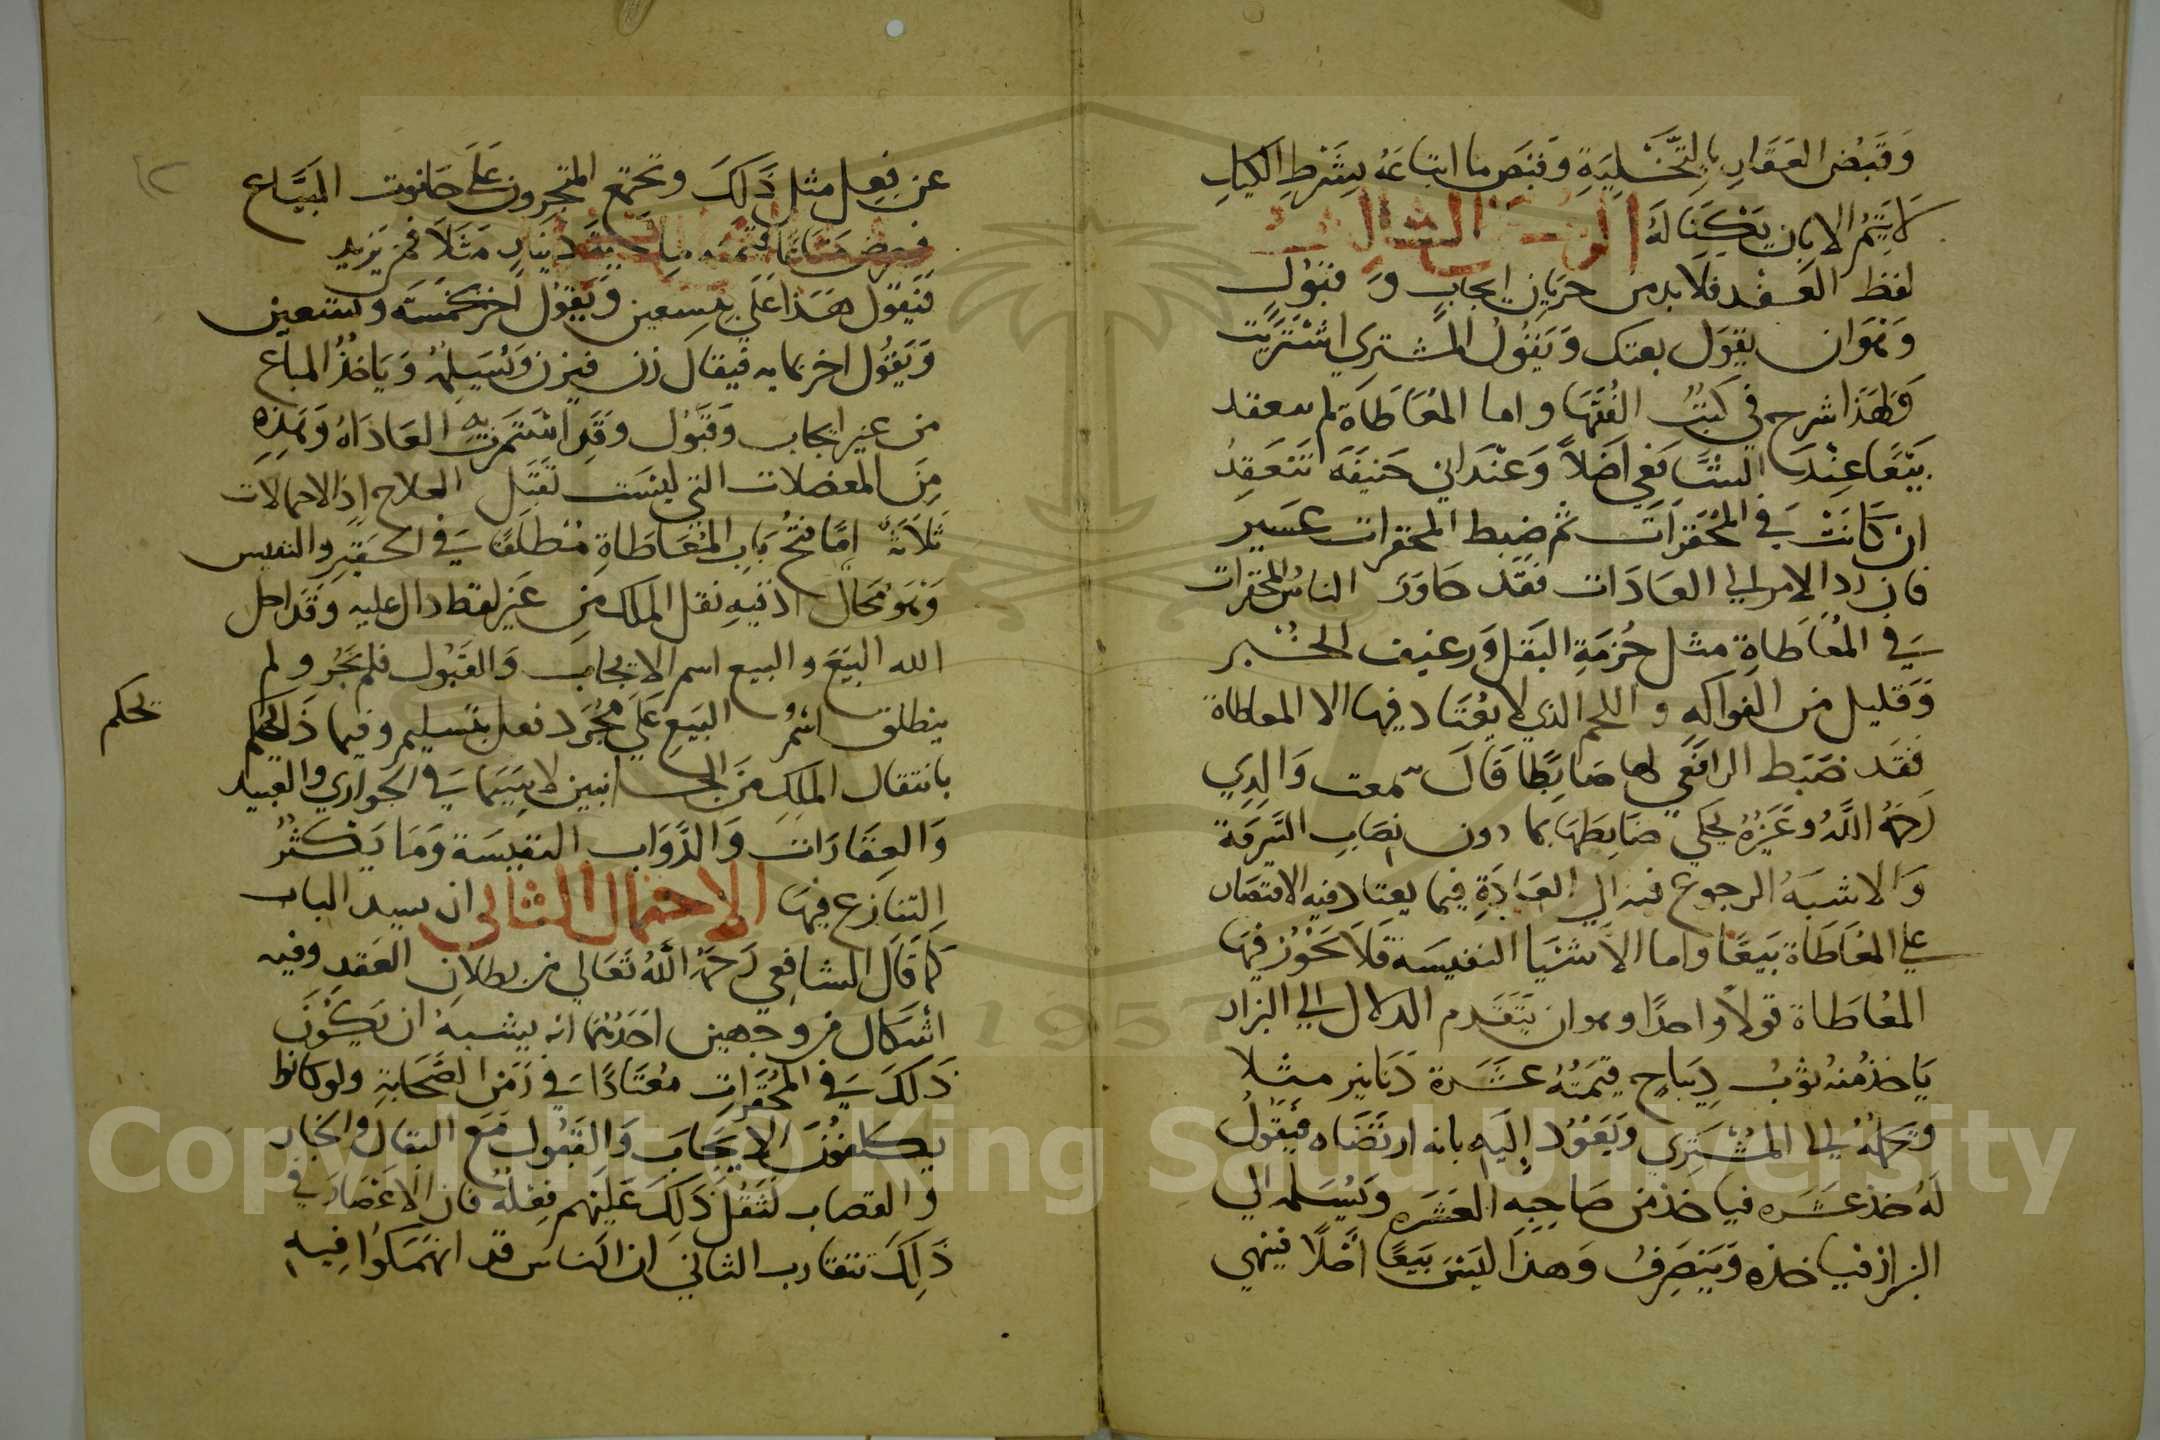 وَقَبْضُ العَقَارِ بِالتَّخْلِيَةِ وَقَبَض ما ابتاعَهُ بِشَرْطِ الكيلِ
لا يَتِمُّ الا بان يَكْتَالَهُ الركن الثالث
لفظ العقد فلا بد من جريان ايجابٍ وقبولٍ
وَهوَ ان يقوَل بعتك وَيَقُولُ المشتري اشتَرَيت
وَهَذا شرح في كُتُبِ الفُقَهَا واما المُعَاطَاة لم تنعقد
بَيْعًا عِنْدَ الشَّافِعي اصْلاً وَعنْدَ ابي حَنيفَه تَنْعَقِدُ
ان كَانَتْ في المُحَقَّرَات ثم ضبط المحقرات عسير
فان رد الامر الى العَادَات فقد جاوَزَ الناسُ المحقرات
في المُعَاطاةِ مثل حُزمَةِ البَقل وَرغيف الخُبز
وَقليل من الفواكه واللحم الذي لا يعُتَاد فيها الا المعاطاة
فقد ضَبَط الرافعي لها ضابِطًا قَالَ سمعت وَالِدِي
رَحمَهُ اللَّهُ وغَيْرُهُ يحكي ضابطهَا بما دون نصَابِ السَّرِقة
وَالاشبَهُ الرجوع فيه الي العَادَةِ فيما يعتاد فيه الاقتصار
علي المعَاطَاة بَيعًا واما الاشيَا النفيسَة فَلا يَحْوُز فيهَا
المُعَاطَاة قولاً واحدًا وهو ان يتَقَدم الدلال الي البزاز
يَاخذ مُنهُ ثوبُ ديبَاج قيمَتُهُ عشَرة دَنانير مثلا
وَيحملهُ الى المُشْتَرِي وَيَعُودُ إليَه بانه ارتضَاه فَيقولُ
لَهُ خذ عشَره فياخذ من صَاحِبِهِ العَشَره وَيُسَلمه الي
البزاز فياخذه وَيَتصَرفُ وَهذا ليْسَ بَيعًا أصْلًا فينهي
عن فِعِل مثل ذَلكَ وتجتمع المتجرون عَلَى حانوت البيَّاع
فيعرض متاعًا قيمته ماية دينار مَثلاً فمن يزيد
فَيقول هَذا عَلَي بتسعين وَيَقُول اخر بخمسَه وتسعين
وَيَقُول اخر بمايه فيقال زن فيزن وَيُسَلِمهُ وَيَاخُذُ المباع
من غير ايجاب وقبُول وقد اسْتَمَرت بِهِ العَادَاهُ وَهذِه
مِنَ المعضلات التي ليْسَت تقبَل العلاج اذ الاحمالات
ثَلاثة امَّا فتح بَابِ المُعَاطَاةِ مُطْلَقًا في الحقير والنفيس
وَهوَ مُحَال اذ فيهِ نقل الملك مِن غير لفظ دال عليه وَقد احل
الله البَيَعَ والبيع اسم الايجاب وَالقَبُول فلم يَجُز ولم
ينطلق اسْمُ البَيعِ عَلَي مُجَرَد فعل بتسليم وفيما ذَا يحكم
يحكم
بانتقال المِلكِ مِنَ الجانبين لا سِيَمَا في الجواري والعبيد
وَالعِقَارَات وَالدَّوَاب النفيسَة وَمَا يَكْثُرُ
التنازع فيهَا الاحتمال الثاني ان نسد الباب
كَمَا قَالَ الشافِعي رَحِمهُ اللّهُ تعَالي من بطلان العَقدِ وفيه
اشكَال من وجهين احَدُهُمَا انه يشبهُ ان يَكُونَ
ذَلكَ في المحُقَرَاتِ مُعْتَادًا في زمَن الصَّحَابةِ ولو كانوا
يكَلفوُنَ الايجابَ وَالقَبُول مَعَ البقال والخباز
وَالقصاب لَثَقُلَ ذَلِكَ عَلَيْهم فِعْله فان الاعَصَار في
ذَلِكَ تتقارب الثاني ان الناس قد انهَمَكوُا فِيه